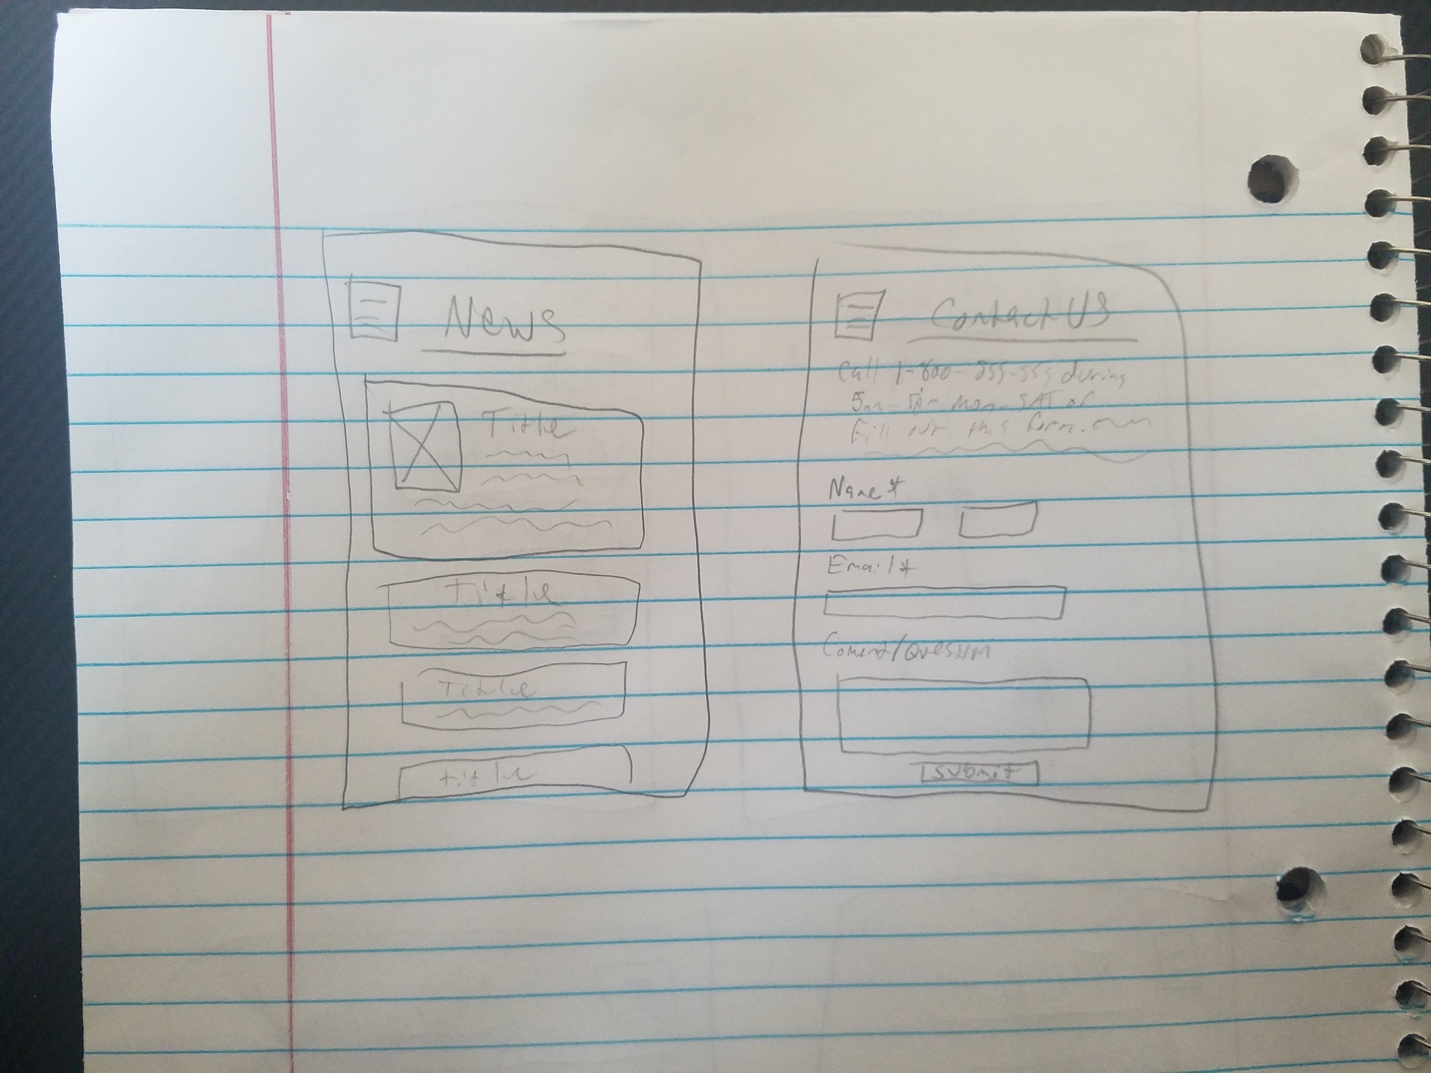 News
Title
Title
Title
title
Contact US
Call 1-800-555-555 during
5am-5pm Mon-SAT or
fill out this form.
Name*
Email*
Coment/Question
Submit